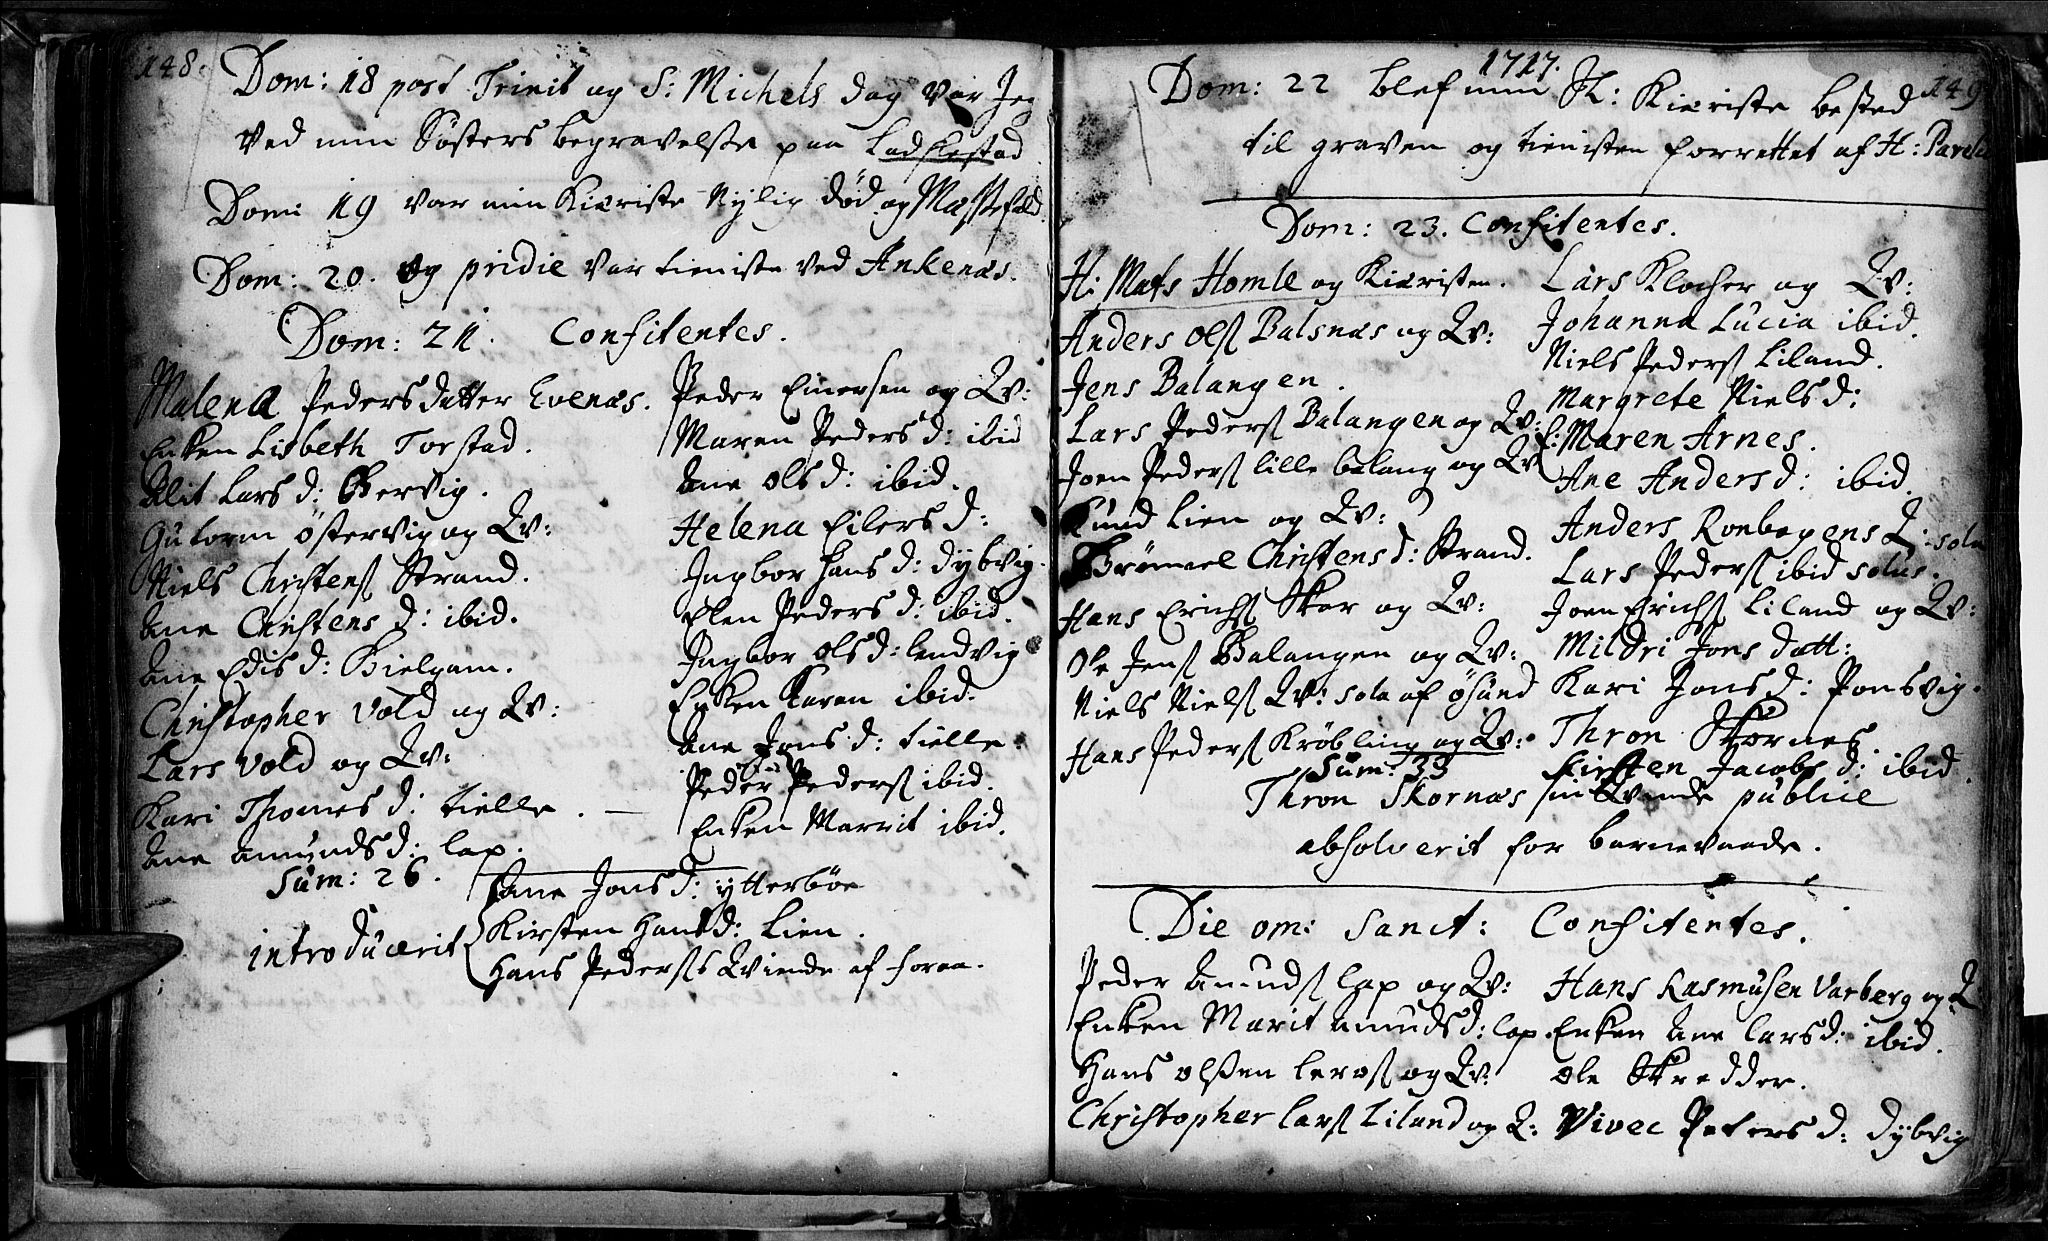 148.
Dom: 18 post Trinit og S: Michels dag var Jeg
ved min Søsters begravelse paa Ladflestad
Dom: 19 var min Kieriste nylig død og Messefald
Dom: 20. og pridie var tieniste ved Ankenæs.
Dom: 21. Confitentes.
Malena Pedersdatter Evenæs.
Enken Lisbeth Torstad.
Alit Lars d: Bervig.
Gutorm Østervig og Qv:
Niels Christens Strand.
Ane Christens d: ibid.
Ane Edis d: Bielgam.
Christopher Vold og Qv:
Lars Vold og Qv:
Kari Thomes d: Tielle.
Ane Amunds d: lap.
Sum: 26.
Peder Einersen og Qv:
Maren Peders d: ibid
Ane Ols d: ibid.
Helena Eilers d:
Ingbor Hans d: Dybvig.
Elen Peders d: ibid.
Ingbor Ols d: Lendvig
Enken Karen ibid.
Ane Jons d: Tielle.
Peder Peders ibid.
Enken Marrit ibid.
introducerit
Ane Jons d: Ytterbøe
Kirsten Hans d: Lien.
Hans Pederss Qvinde af Foraa.
1717.
149
Dom: 22 blef min Sl: Kieriste bested
til graven og tienisten forrettet af H:
Dom: 23. Confitentes.
H: Mats Homle og Kieristen.
Anders Ols Balsnæs og Qv:
Jens Balangen.
Lars Peders Balangen og Qv:
Joen Peders lille balang og Qv
Knud Lien og Qv:
Christens d: Strand.
Hans Erichs Skar og Qv:
Ole Jens Balangen og Qv:
Niels Niels Qv: sola af Øsund
Hans Peders Krøbling og Qv:
Sum: 33
Lars Klocher og Qv:
Johanna Lucia ibid.
Niels Peders Liland.
Margrete Niels d:
Maren Arnes.
Ane Anders d: ibid
Anders Ronbogens Q: sola
Lars Peders ibid solus.
Joen Erichs Liland og Qv:
Mildri Jons datt:
Kari Jons d: Ponsvig.
Thron Skornes
Kirsten Jacobs d: ibid.
Thron Skornæs sin Qvinde publice
absolverit for barnevaade.
Die om: Sanct: Confitentes.
Peder Amunds lap og Qv:
Enken Marit Amunds d: lap.
Hans Olssen Leros og Qv:
Christopher Lars Liland og Q:
Hans Rasmusen Varberg og Q
Enken Ane Lars d: ibid.
Ole Skredder.
Vivec Peters d: Dybvig